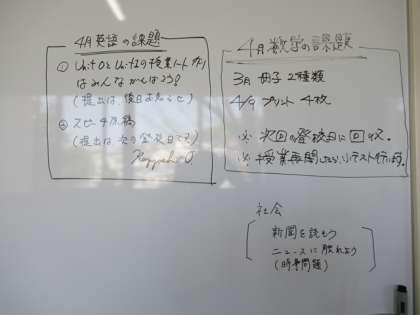 4月英語の課題
① Unit0とUnit1の授業ノート作り
はみんながんばろう!
(提出は後日お知らせ)
② スピーチ原稿
(提出は次の登校日です)
4月数学の課題
3月 冊子 2種類
4/9 プリント 4枚
※ 次回の登校日に回収。
※ 授業再開したら、小テスト行います。
社会
新聞を読もう
ニュースに触れよう
(時事問題)